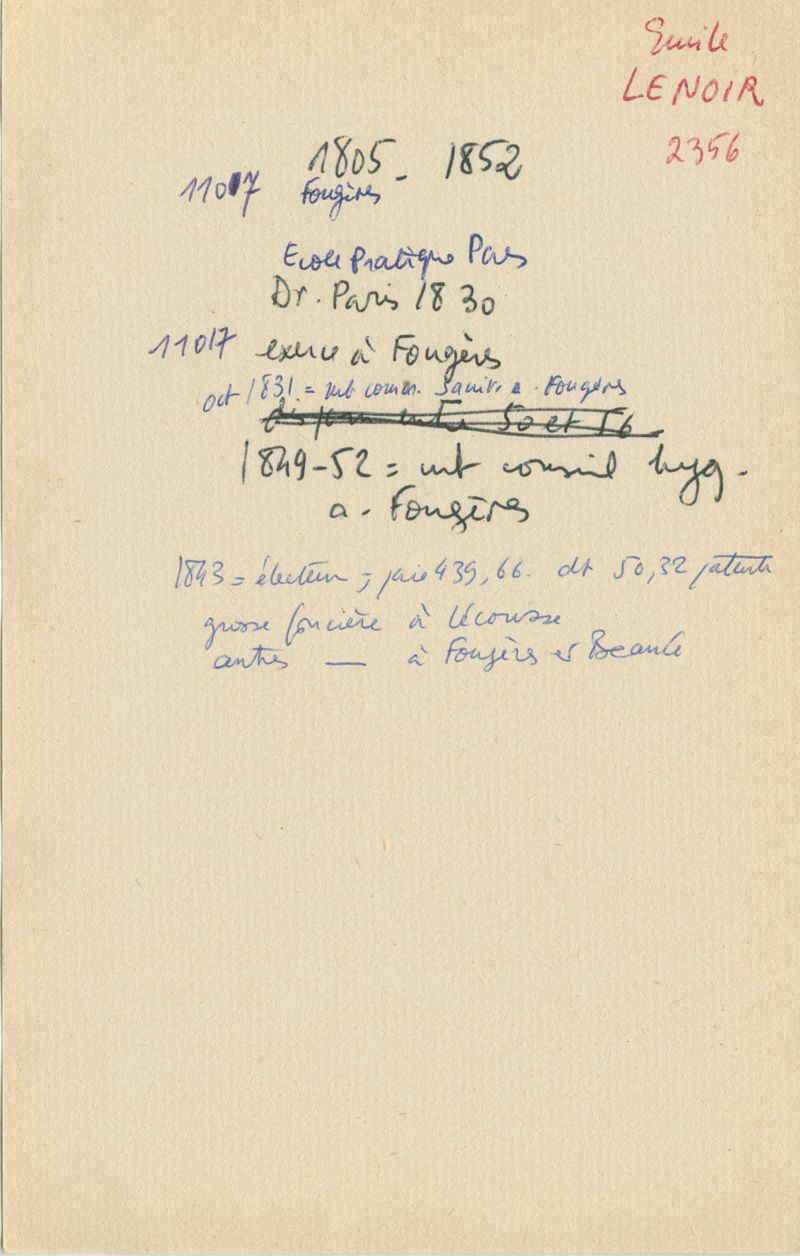 Emile
LENOIR
2356
1805 - 1852
11017 Fougères
Ecole Pratique Paris
Dr. Paris 1830
11017 exerce à Fougères
oct 1831 = mb comm. Sanit. a. Fougères
entre 50 et 56
1849-52 = mb conseil hyg.
a. Fougères
1843 = électeur ; paie 439,66. dt 50,32 patente
grosse foncière à Lécousse
autres — à Fougères et Beaucé